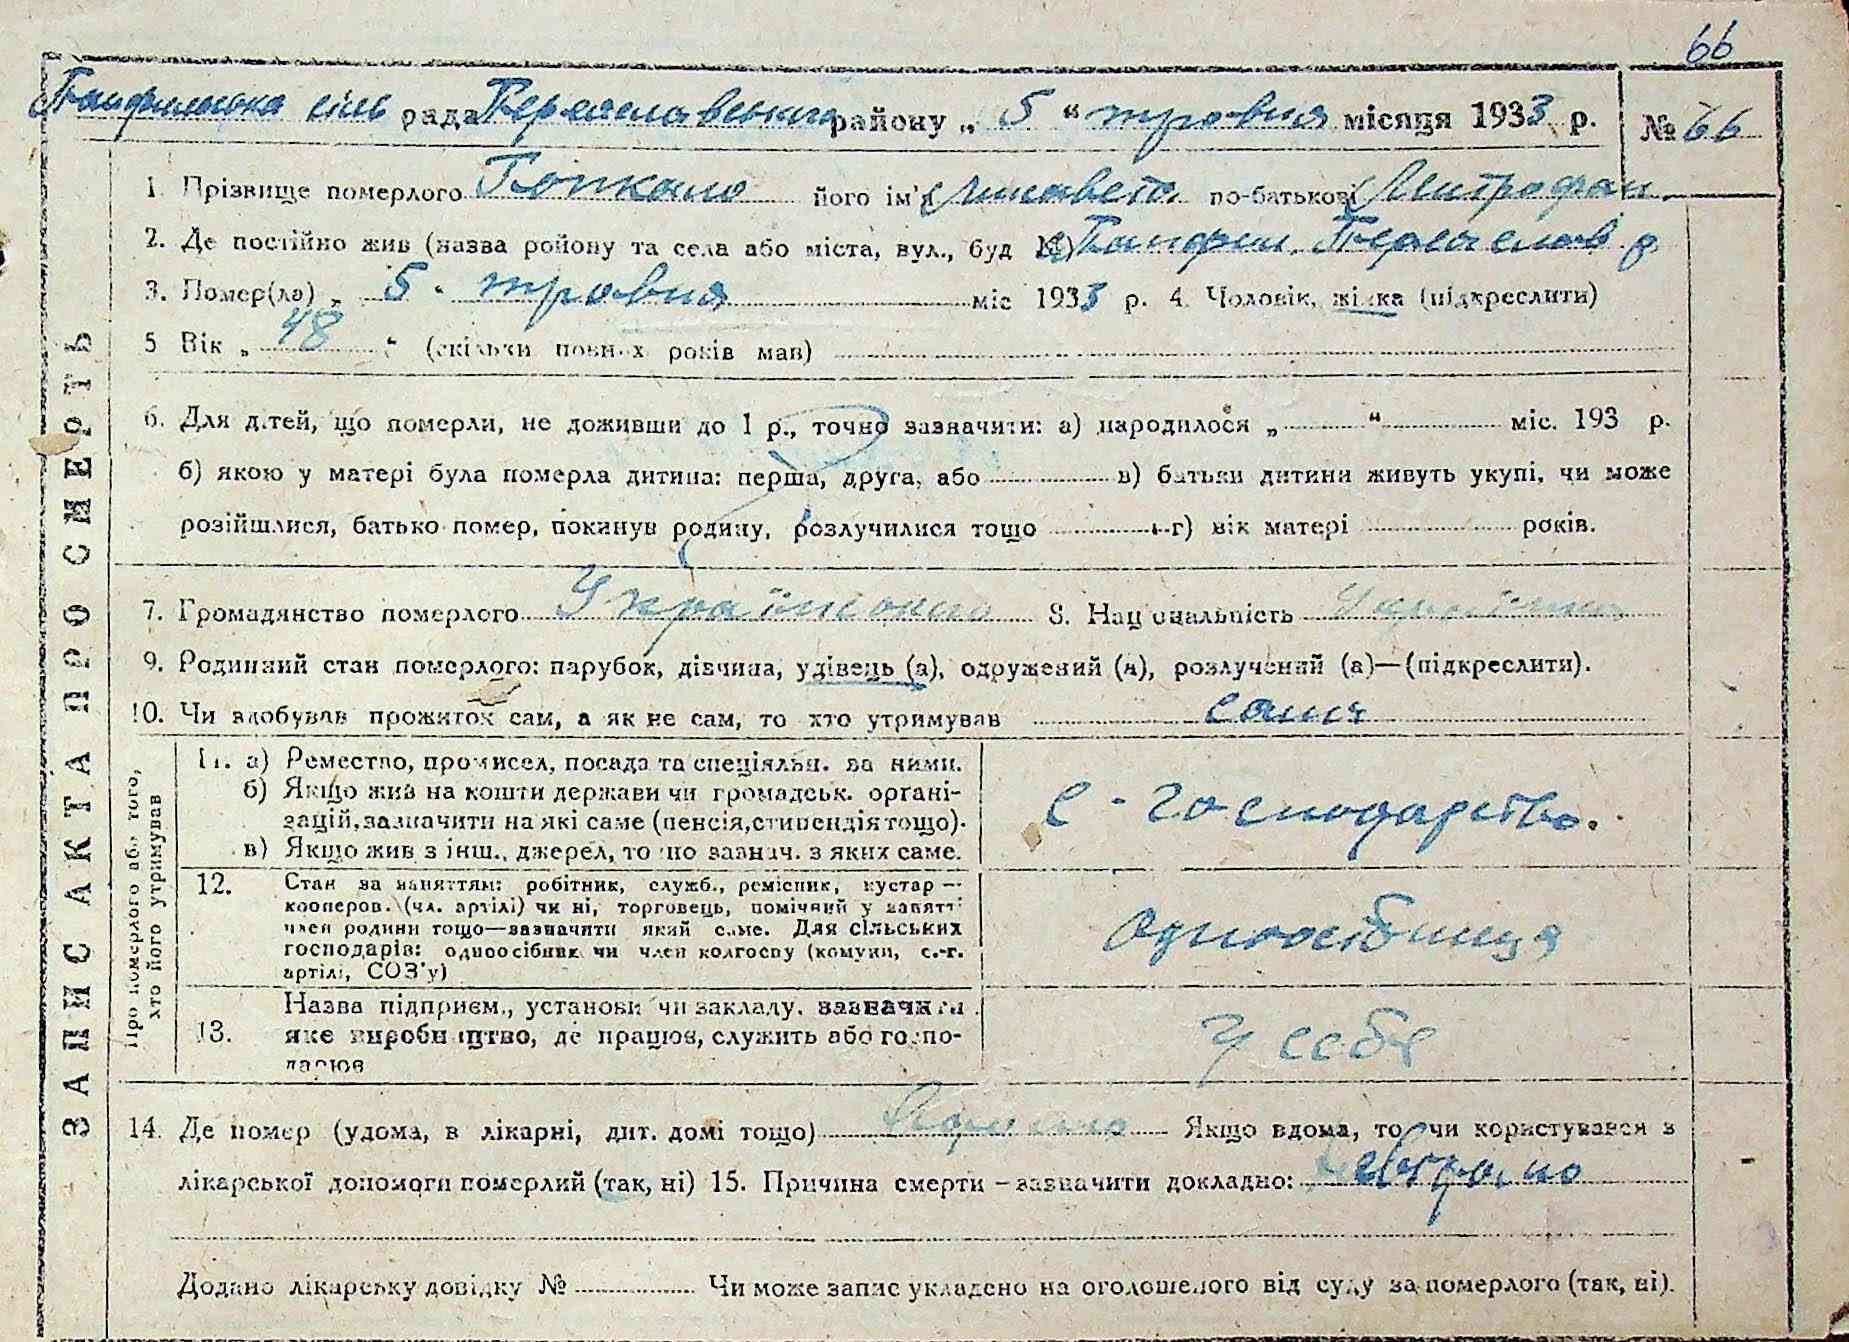 66
Панфильська сіль рада Переяславський району „ 5 “ травня місяця 1933 р. № 66
ЗАПИС АКТА ПРО СМЕРТЬ
1. Прізвище померлого його ім'я Лисавета по-батькові Митрофан.
2. Де постійно жив (назва району та села або міста, вул., буд №) Панфил. Переяслав р.
3. Помер(ла) „ 5 “ травня міс 1933 р. 4. Чоловік, жінка (підкреслити)
5 Вік „ 48 “ (скільки повних років мав)
6. Для дітей, що померли, не доживши до 1 р., точно зазначити: а) народилося „ “ міс. 193 р.
б) якою у матері була померла дитина: перша, друга, або в) батьки дитини живуть укупі, чи може
розійшлися, батько помер, покинув родину, розлучилися тощо г) вік матері років.
7. Громадянство померлого 8. Національність Українка
9. Родинний стан померлого: парубок, дівчина, удівець (а), одружений (а), розлучений (а)—(підкреслити).
10. Чи здобував прожиток сам, а як не сам, то хто утримував сама
Про померлого або того,
хто його утримував
11. а) Ремество, промисел, посада та спеціяльн. за ними.
б) Якщо жив на кошти держави чи громадськ. органі-
зацій, зазначити на які саме (пенсія, стипендія тощо).
в) Якщо жив з інш., джерел, то по зазнач. з яких саме.
с-господарство.
12. Стан за заняттям: робітник, служб., ремісник, кустар —
кооперов. (чл. артілі) чи ні, торговець, помічний у занятті
член родини тощо—зазначити який саме. Для сільських
господарів: одноосібник чи член колгоспу (комуни, с.-г.
артілі, СОЗ'у)
одноосібниця
13. Назва підприєм., установи чи закладу. зазначити
яке виробництво, де працює, служить або госпо-
дарює
У себе
14. Де помер (удома, в лікарні, дит. домі тощо) Якщо вдома, то чи користувався з
лікарської допомоги померлий (так, ні) 15. Причина смерти – зазначити докладно:
Додано лікарську довідку № Чи може запис укладено на оголошеного від суду за померлого (так, ні).